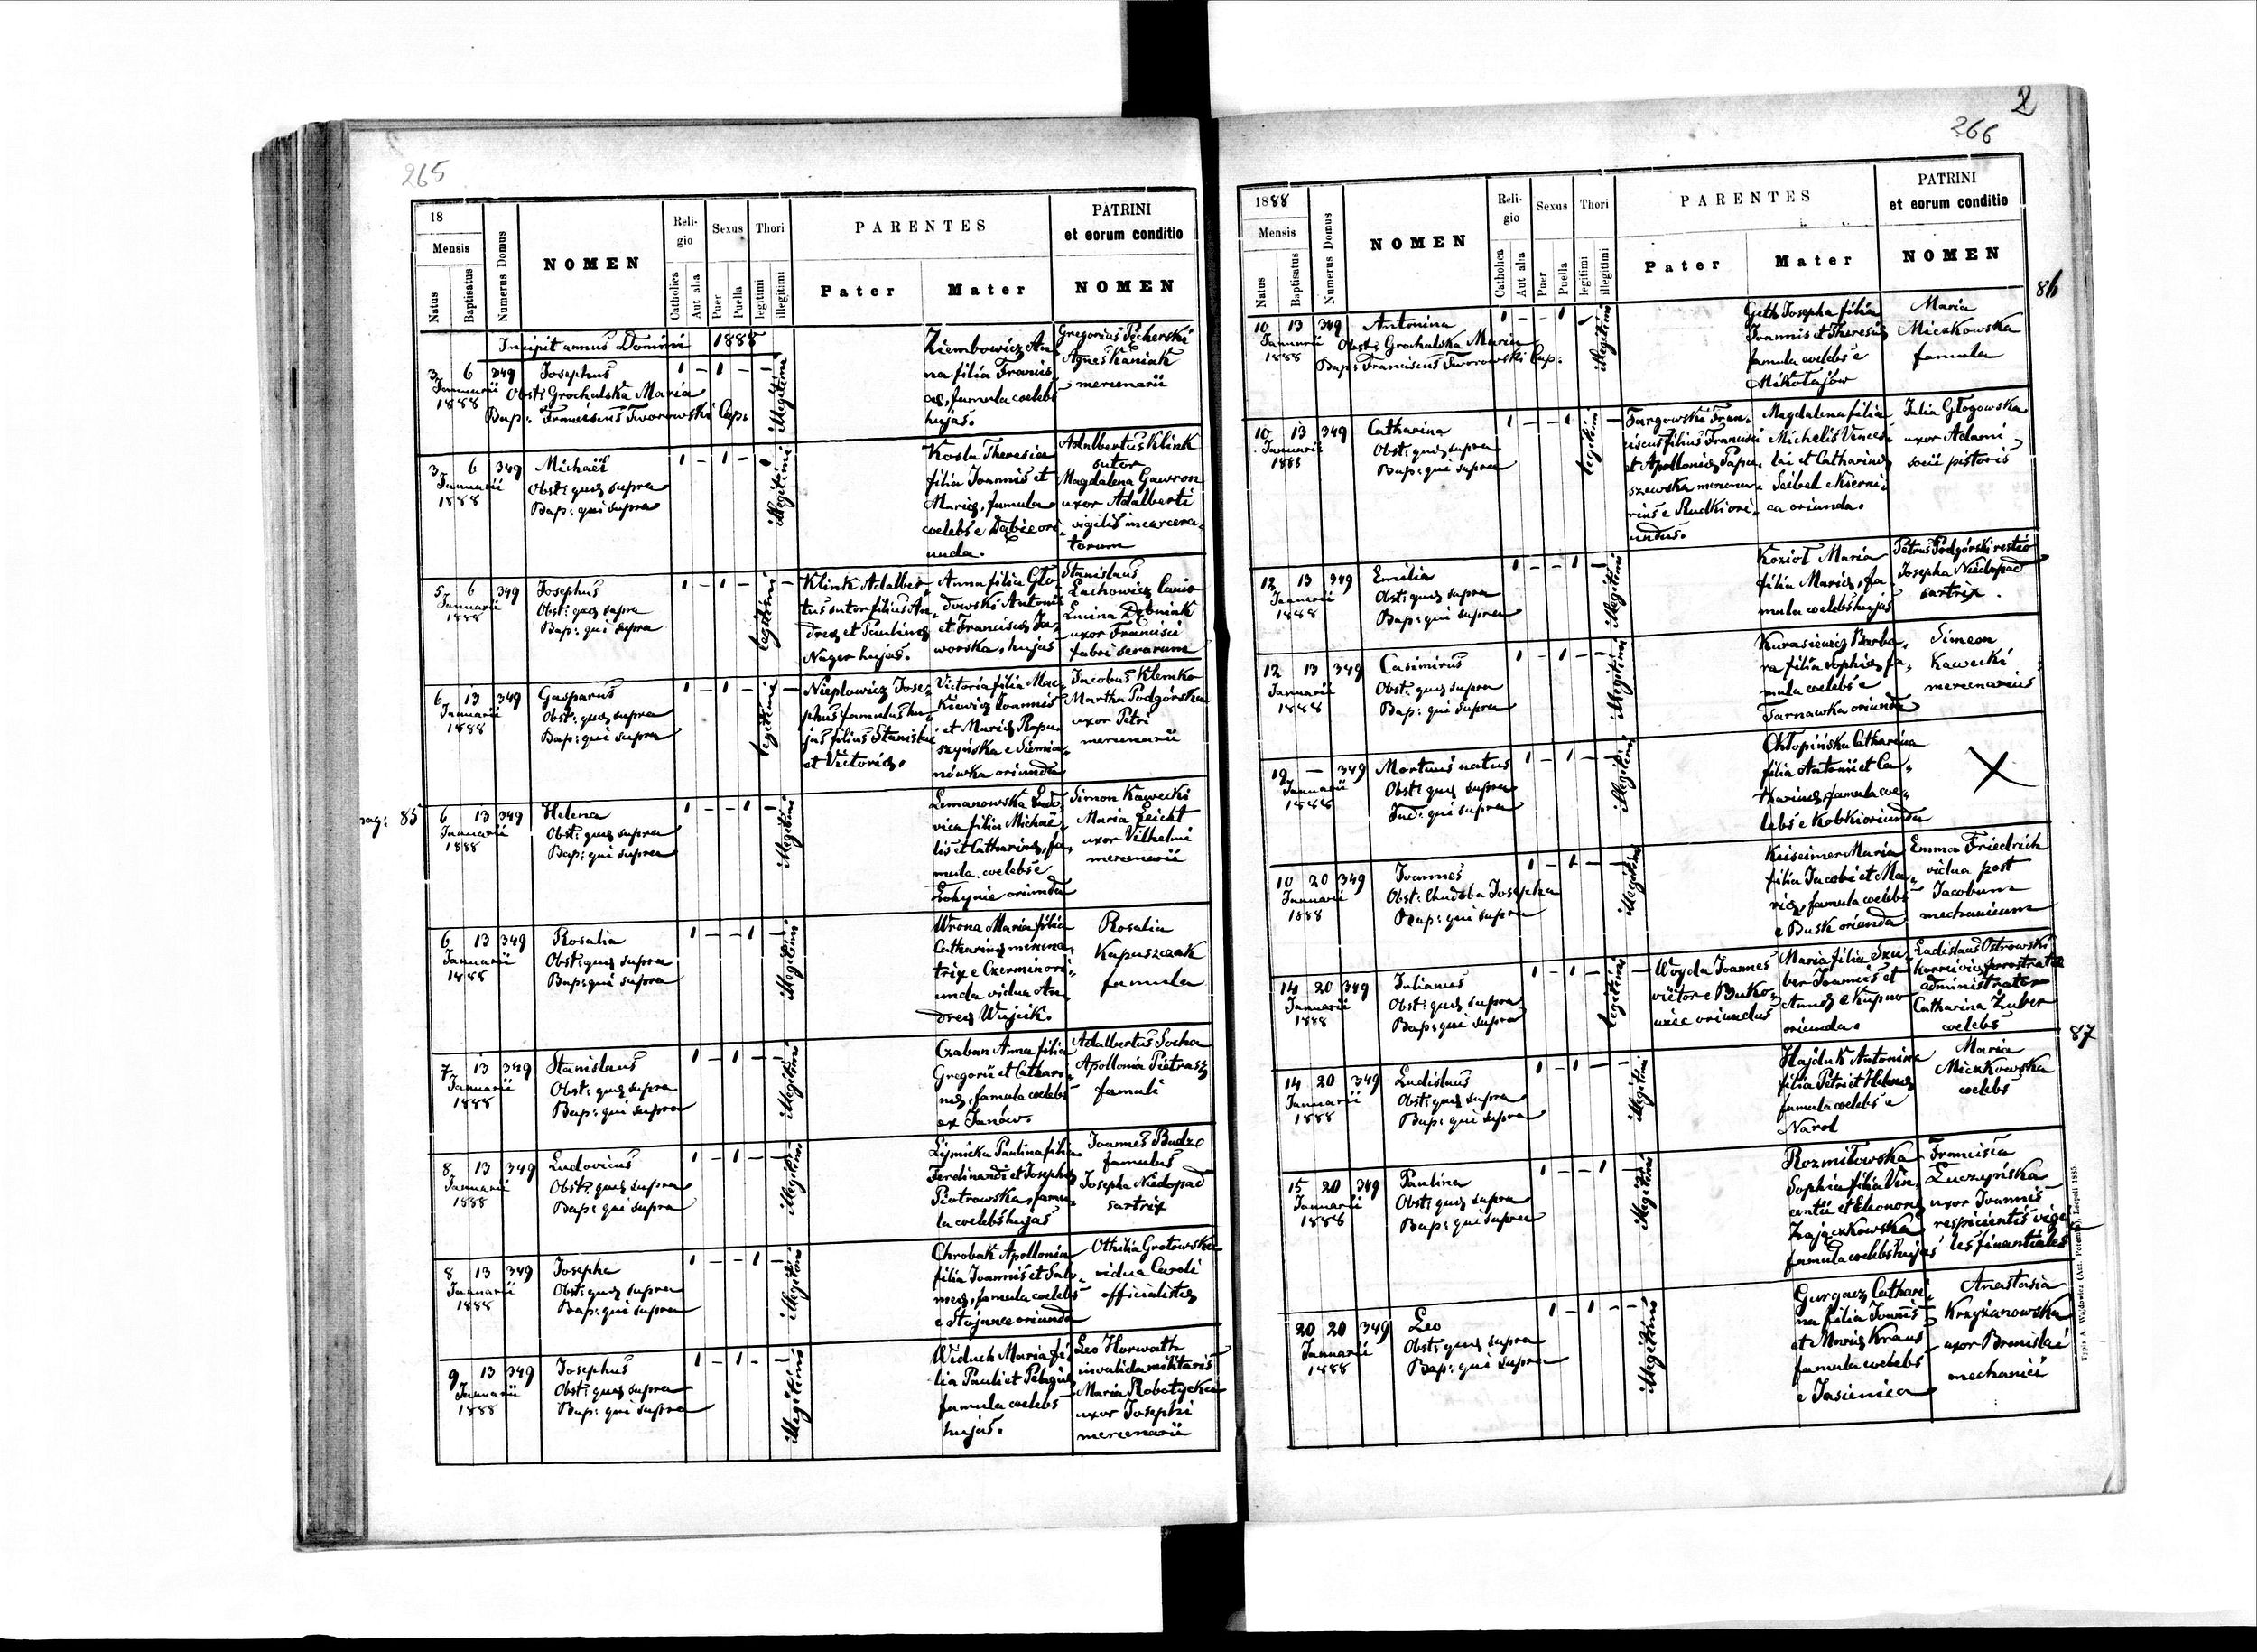 265
18
Mensis
Natus
Baptisatus
Numerus Domus
NOMEN
Religio
Catholica
Aut alia
Sexus
Puer
Puella
Thori
legitimi
illegitimi
PARENTES
Pater
Mater
PATRINI
et eorum conditio
NOMEN
Incipit annus Domini 1888
3 6 349
Januarii
1888
Josephus
Obst: Grochulska Maria
Bap: Franciscus Tworowski Cap.
1 - 1 - - 1
illegitimi
Ziembowicz An
na filia Francis
ae, famula coelebs
hujas.
Gregorius
Agnes Kaniak
mercenarii
3 6 349
Januarii
1888
Michaël
Obst: quae supra
Bap: qui supra
1 - 1 -
illegitimi
Kosla Theresia
filia Joannis et
Mariae, famula
coelebs e Dąbie ori
unda.
Adalbertus Klink
sutor
Magdalena Gawron
uxor Adalberti
vigilis incarcera
torum
5 6 349
Januarii
1888
Josephus
Obst: quae supra
Bap: qui supra
1 - 1 - -
legitimi
Klink Adalber
tus sutor filius An
dreae et Paulinae
Nager hujas.
Anna filia Gło
dowski Antonii
et Franciscae Ja
worska, hujas
Stanislaus
Lachowicz lanio
Dębniak
uxor Francisci
fabri serarum
6 13 349
Januarii
1888
Gasparus
Obst: quae supra
Bap: qui supra
1 - 1 - -
legitimi
Nieplowicz Jose
phus famulus hu
jas filius Stanislai
et Victoriae.
Victoria filia Mac
kiewicz Joannis
et Mariae Ropu
szyńska e Siemia
nówka oriunda
Jacobus Klemko
Martha Podgórska
uxor Petri
mercenarii
pag: 85
6 13 349
Januarii
1888
Helena
Obst: quae supra
Bap: qui supra
1 - - 1 -
illegitimi
Lemanowska Ludo
vica filia Michaë
lis et Catharinae, fa
mula coelebs e
Rokynie oriunda
Simon Kawecki
Maria Leicht
uxor Vilhelmi
mercenarii
6 13 349
Januarii
1888
Rosalia
Obst: quae supra
Bap: qui supra
1 - - 1 -
illegitimi
Wrona Maria filia
Catharinae mercena
trix e Czermin ori
unda vidua An
dreae Wujcik.
Rosalia
Kapuszczak
famula
7 13 349
Januarii
1888
Stanislaus
Obst: quae supra
Bap: qui supra
1 - 1 - -
illegitimi
Czaban Anna filia
Gregorii et Cathari
nae, famula coelebs
ex Janów.
Adalbertus Socha
Apollonia Pietrasz
famuli
8 13 349
Januarii
1888
Ludovicus
Obst: quae supra
Bap: qui supra
1 - 1 - -
illegitimi
Paulina filia
Ferdinandi et Josephae
Piotrowska, famu
la coelebs hujas
Joannes Budzo
famulus
Josepha Niedopad
sartrix
8 13 349
Januarii
1888
Josepha
Obst: quae supra
Bap: qui supra
1 - - 1 -
illegitimi
Chrobak Apollonia
filia Joannis et Salo
meae, famula coelebs
e Stojance oriunda
Othilia Grotowska
vidua Caroli
officialistae
9 13 349
Januarii
1888
Josephus
Obst: quae supra
Bap: qui supra
1 - 1 - -
illegitimi
Widuch Maria fi
lia Pauli et Pelagiae
famula coelebs
hujas.
Leo Horwath
invalida militaris
Maria Robotycka
uxor Josephi
mercenarii
2
266
1888
Mensis
Natus
Baptisatus
Numerus Domus
NOMEN
Religio
Catholica
Aut alia
Sexus
Puer
Puella
Thori
legitimi
illegitimi
PARENTES
Pater
Mater
PATRINI
et eorum conditio
NOMEN
86
10 13 349
Januarii
1888
Antonina
Obst: Grochulska Maria
Bap: Franciscus Tworowski Cap:
1 - - 1 -
illegitimi
Geth Josepha filia
Joannis et Theresiae
famula coelebs e
Mikołajów
Maria
Miczkowska
famula
10 13 349
Januarii
1888
Catharina
Obst: quae supra
Bap: qui supra
1 - - 1 -
legitimi
Targowski Fran
ciscus filius Francisci
et Apolloniae Papu
szewska mercena
rius e Rudki ori
undus.
Magdalena filia
Michelis Vences
lai et Catharinae
Seibel e Kierni
ca oriunda.
Julia Głogowska
uxor Adami
socii pistoris
12 13 349
Januarii
1888
Emilia
Obst: quae supra
Bap: qui supra
1 - - 1 -
illegitimi
Kozioł Maria
filia Mariae, fa
mula coelebs hujas
Petrus Podgórski restio
Josepha Niedopad
sartrix.
12 13 349
Januarii
1888
Casimirus
Obst: quae supra
Bap: qui supra
1 - 1 - -
illegitimi
Kurasiewicz Barba
ra filia Sophiae fa
mula coelebs e
Tarnawka oriunda
Simeon
Kawecki
mercenarius
19 - 349
Januarii
1888
Mortuus natus
Obst: quae supra
Jud: qui supra
1 - 1 - -
illegitimi
Chłopińska Catharina
filia Antonii et Ca
tharinae, famula coe
lebs e Kobki oriunda
X
10 20 349
Januarii
1888
Joannes
Obst: Chudoba Josepha
Bap: qui supra
1 - 1 - -
illegitimi
Keiseimer Maria
filia Jacobi et Ma
riae, famula coelebs
e Busk oriunda
Emma Friedrich
vidua post
Jacobum
mechanicum
14 20 349
Januarii
1888
Julianus
Obst: quae supra
Bap: qui supra
1 - 1 - -
legitimi
Woyda Joannes
victor e Buko
wiec oriundus
Maria filia Szu
ber Joannis et
Annae e Kupno
oriunda.
Ladislaus Ostrowski
administrator
Catharina Zuber
coelebs
87
14 20 349
Januarii
1888
Ladislaus
Obst: quae supra
Bap: qui supra
1 - 1 - -
illegitimi
Hajduk Antonina
filia Petri et Helenae
famula coelebs e
Narol
Maria
Miczkowska
coelebs
15 20 349
Januarii
1888
Paulina
Obst: quae supra
Bap: qui supra
1 - - 1 -
illegitimi
Rozmiłowska
Sophia filia Vin
centii et Eleonorae
Zajączkowska
famula coelebs hujas
Francisca
Łuczyńska
uxor Joannis
respicientis vigi
les finantiales
20 20 349
Januarii
1888
Leo
Obst: quae supra
Bap: qui supra
1 - 1 - -
illegitimi
Gurgacz Cathari
na filia Joannis
et Mariae Kraus
famula coelebs
e Jasienica
Anastasia
Krzyżanowska
uxor Bronislai
mechanici
Leopoli 1885.